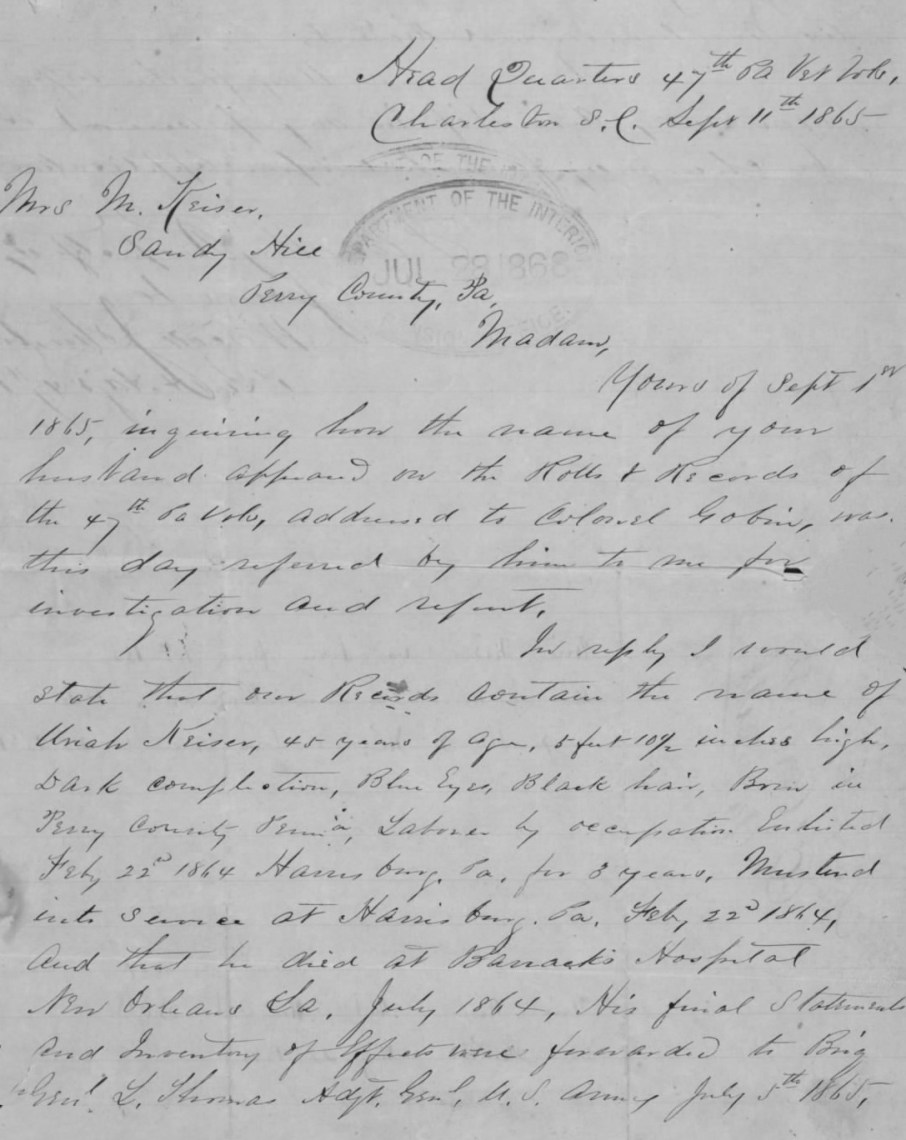 Head Quarters 47th Pa Vet Vols,
Charleston S.C. Sept 11th 1865
Mrs M. Keiser,
DEPARTMENT OF THE INTERIOR
JUL 28 1868
Sandy Hill
Perry County, Pa,
Madam,
Yours of Sept 1st
1865, inquiring how the name of your
husband appeared on the Rolls & Records of
the 47th Pa Vols, addressed to Colonel Gobin, was
this day referred by him to me for
investigation and report.
In reply I would
state that our Records contain the name of
Uriah Keiser, 45 years of age, 5 feet 10½ inches high,
Dark complection, Blue Eyes, Black hair, Born in
Perry County Penn'a, Laborer by occupation Enlisted
Feby 22d 1864 Harrisburg, Pa. for 3 years, Mustered
into service at Harrisburg. Pa. Feby 22d 1864,
and that he died at Barracks Hospital
New Orleans La. July 1864, His final Statements
and Inventory of Effects were forwarded to Brig
Genl. L. Thomas Adjt. Genl, U.S. Army July 5th 1865,